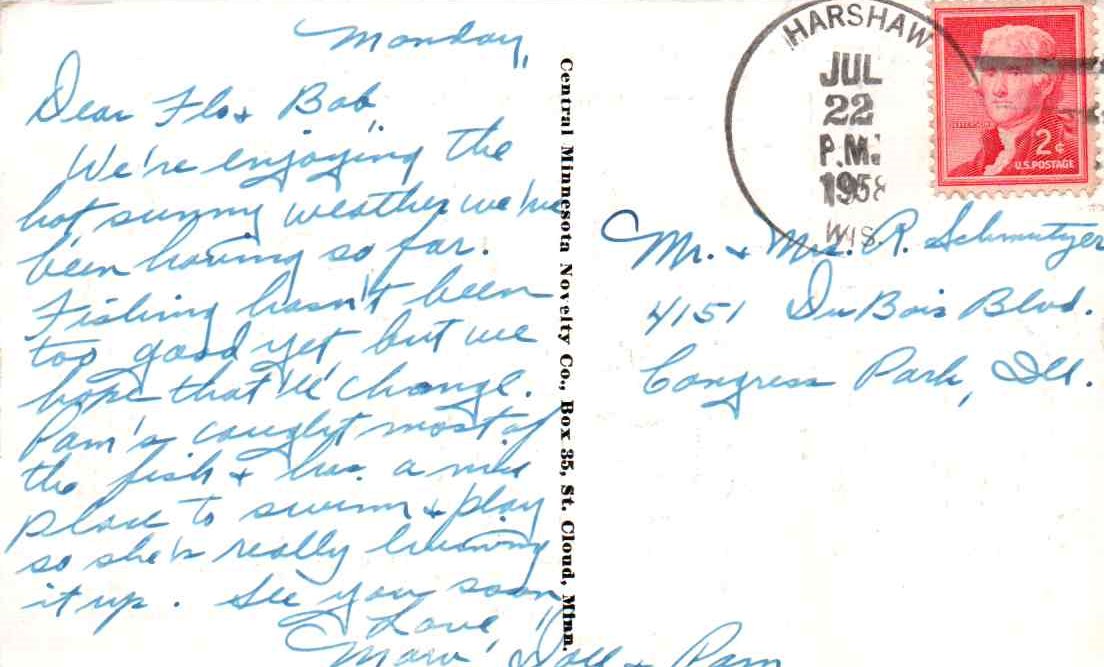 Monday,
Dear Flo & Bob,
We're enjoying the
hot sunny weather we've
been having so far.
Fishing hasn't been
too good yet, but we
hope that'll change.
Pam's caught most of
the fish & has a nice
place to swim & play
so she's really living
it up. See you soon,
Love,
Marv, Doll & Pam
Central Minnesota Novelty Co., Box 35, St. Cloud, Minn.
HARSHAW
JUL
22
P.M.
1958
WIS.
JEFFERSON
2¢
U.S. POSTAGE
Mr. & Mrs. R. Schmutzer
4151 DuBois Blvd.
Congress Park, Ill.